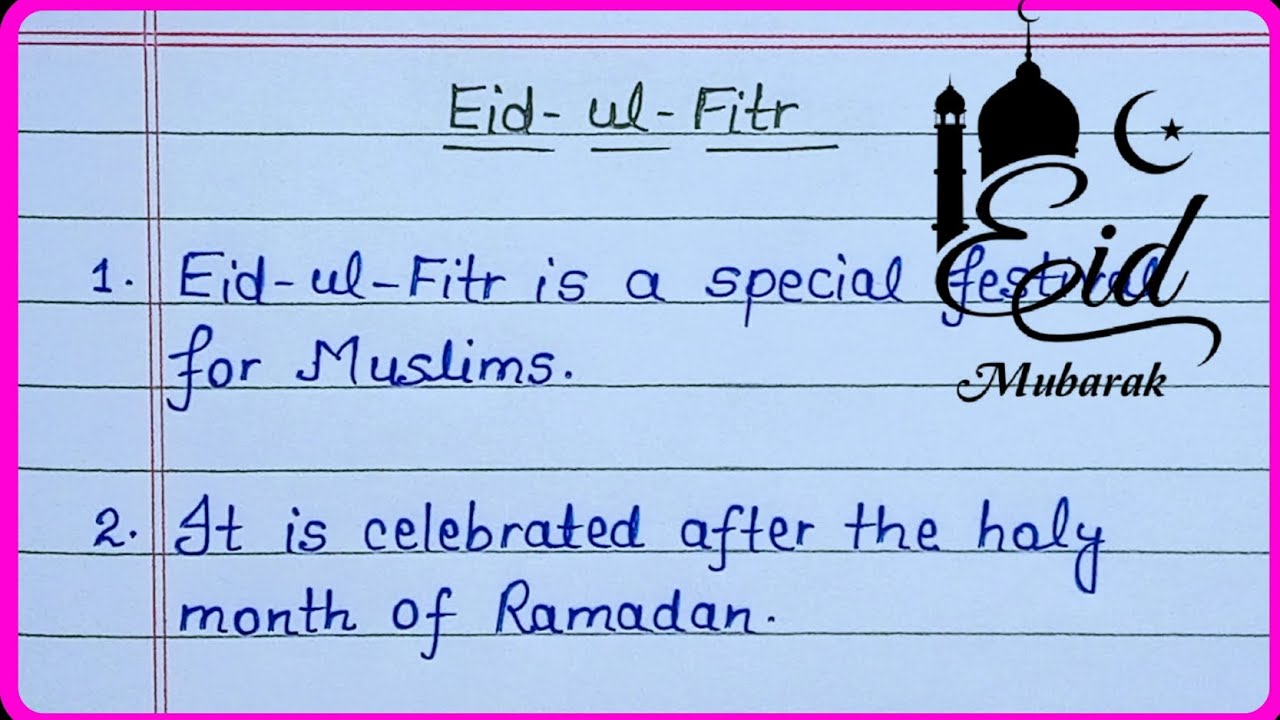 Eid-ul-Fitr
1. Eid-ul-Fitr is a special festival
for Muslims.
Eid
Mubarak
2. It is celebrated after the holy
month of Ramadan.